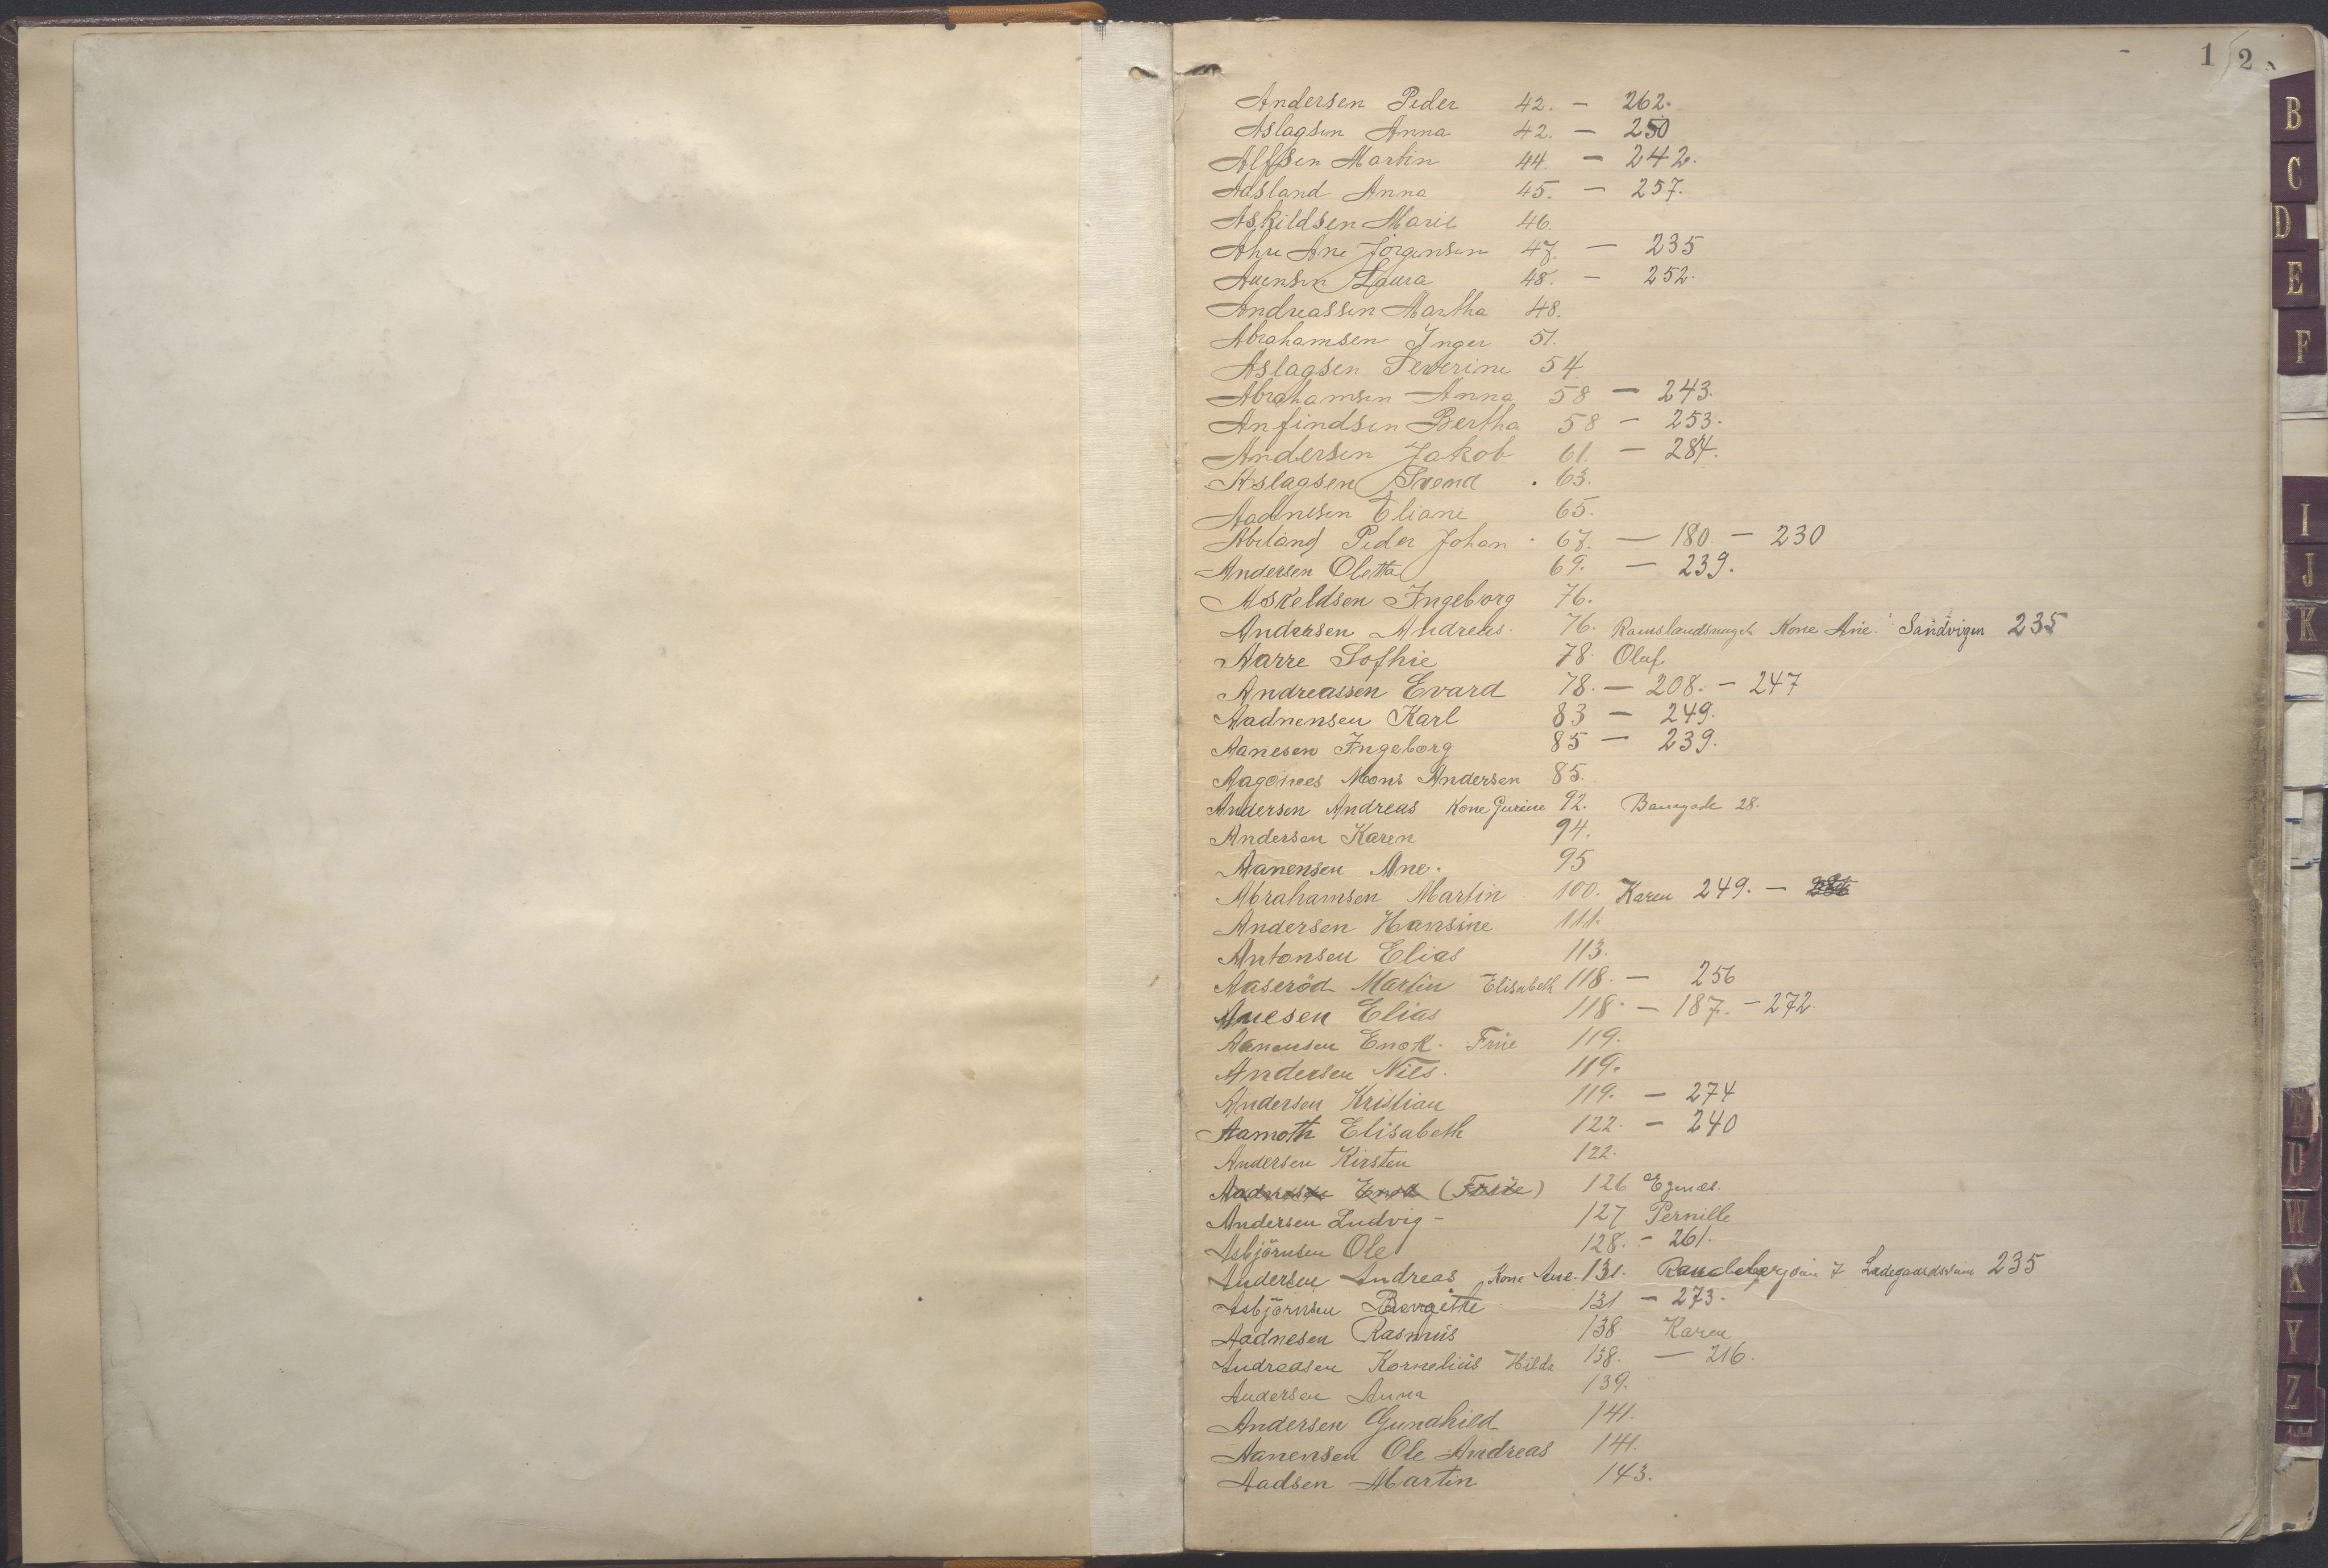 1 2
Andersen Peder 42. - 262.
Aslagsen Anna 42. - 250
Alfsen Martin 44. - 242.
Adsland Anna 45. - 257.
Askildsen Marie 46.
Ahre Ane Jörgensen 47. - 235
Auensen Laura 48. - 252.
Andreassen Martha 48.
Abrahamsen Inger 51.
Aslagsen Severine 54
Abrahamsen Anna 58 - 243.
Anfindsen Bertha 58 - 253.
Andersen Jakob 61. - 284.
Aslagsen Svend . 63.
Aadnesen Eliane 65.
Abeland Peder Johan . 67. - 180. - 230
Andersen Oletta 69. - 239.
Askeldsen Ingeborg 76.
Andersen Andreas. 76. Kone Ane. Sandvigen 235
Aarre Sofhie 78. Oluf
Andreassen Evard 78. - 208. - 247
Aadnensen Karl 83 - 249.
Aanesen Ingeborg 85 - 239.
Mons Andersen 85.
Andersen Andreas Kone Gurine 92. 28.
Andersen Karen 94.
Aanensen Ane. 95
Abrahamsen Martin 100. Karen 249. -
Andersen Hansine 111.
Antonsen Elias 113.
Aaseröd Martin Elisabeth 118. - 256
Anesen Elias 118. - 187. - 272.
Aanensen Enok. Frue 119.
Andersen Nils. 119.
Andersen Kristian 119. - 274
Aamoth Elisabeth 122. - 240
Andersen Kirsten 122.
Enok 126 Egenæs.
Andersen Ludvig - 127 Pernille
Asbjörnsen Ole 128. - 261.
Andersen Andreas Kone Ane. 131. 7 235
Asbjörnsen Bergitte 131 - 273.
Aadnesen Rasmus 138 Karen
Andreasen Kornelius Hilda 138. - 216.
Andersen Anna 139.
Andersen Gunahild 141.
Aanensen Ole Andreas 141.
Aadsen Martin 143.
B
C
D
E
F
I
J
K
U
W
X
Y
Z